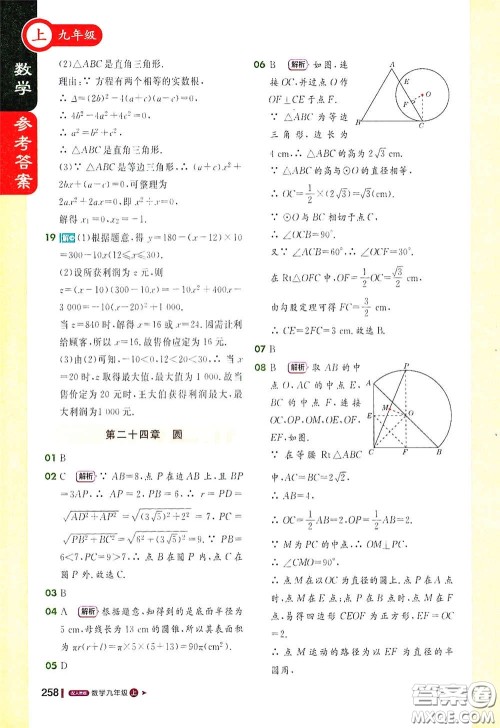 上 九年级
数学
参考答案
(2)△ABC是直角三角形.
理由:∵ 方程有两个相等的实数根,
∴ Δ=(2b)²-4(a+c)(a-c)=0.
∴ 4b²-4a²+4c²=0.
∴ a²=b²+c².
∴ △ABC是直角三角形.
(3)∵ △ABC是等边三角形,∴ (a+c)x²+
2bx+(a-c)=0可整理为
2ax²+2ax=0,即x²+x=0.
解得x₁=0,x₂=-1.
19 解 (1)根据题意,得y=180-(x-12)×10
=300-10x(12≤x≤30).
(2)设所获利润为z元,则
z=(x-10)(300-10x)=-10x²+400x-
3 000=-10(x-20)²+1 000.
当z=840时,解得x=16或x=24.因需让利
给顾客,所以x=16.故售价应定为16元.
(3)由(2)可知,-10<0,12<20<30,∴ 当
x=20时,z取得最大值,最大值为1 000.故当
售价定为20元时,王大伯获得利润最大,最
大利润为1 000元.
第二十四章 圆
01 B
02 C 解析 ∵ AB=8,点P在边AB上,且BP
=3AP,∴ AP=2,PB=6.∴ r=PD=
√AD²+AP²=√(3√5)²+2²=7,PC=
√PB²+BC²=√6²+(3√5)²=9.∵ PB=
6<7,PC=9>7,∴ 点B在圆P内,点C在
圆P外.故选C.
03 B
04 A 解析 根据题意,知所求的是底面半径为
5 cm,母线长为13 cm的圆锥,所以其表面积
为πr(r+l)=5π×(5+13)=90π(cm²).
05 D
06 B 解析 如图,连
接OC,并过点O作
OF⊥CE于点F.
∵ △ABC为等边
三角形,边长为
4 cm,
∴ △ABC的高为2√3 cm.
∵ △ABC的高与⊙O的直径相等,
∴ OC=1/2×(2√3)=√3(cm).
∵ ⊙O与BC相切于点C,
∴ ∠OCB=90°.
又∵ ∠ACB=60°,∴ ∠OCF=30°.
∴ 在Rt△OFC中,OF=1/2OC=√3/2 cm.
由勾股定理可得FC=3/2 cm.
∴ CE=2FC=3 cm.故选B.
07 B
08 B 解析 取AB的中
点O、AC的中点E、
BC的中点F,连接
OC,OP,OM,OE,
OF,EF,如图.
∵ 在等腰Rt△ABC
中,AC=BC=4,
∴ AB=4√2.
∴ OC=1/2AB=2√2,OP=1/2AB=2√2.
∵ M为PC的中点,∴ OM⊥PC.
∴ ∠CMO=90°.
∴ 点M在以OC为直径的圆上.
当点P在点A时,点M在点E;当点P在点
B时,点M在点F.
易得四边形CEOF为正方形,EF=OC=
258 配人教版 数学九年级 上
A
B
C
E
F
O
P
A
E
M
O
C
F
B
答案圈
MXQE.COM